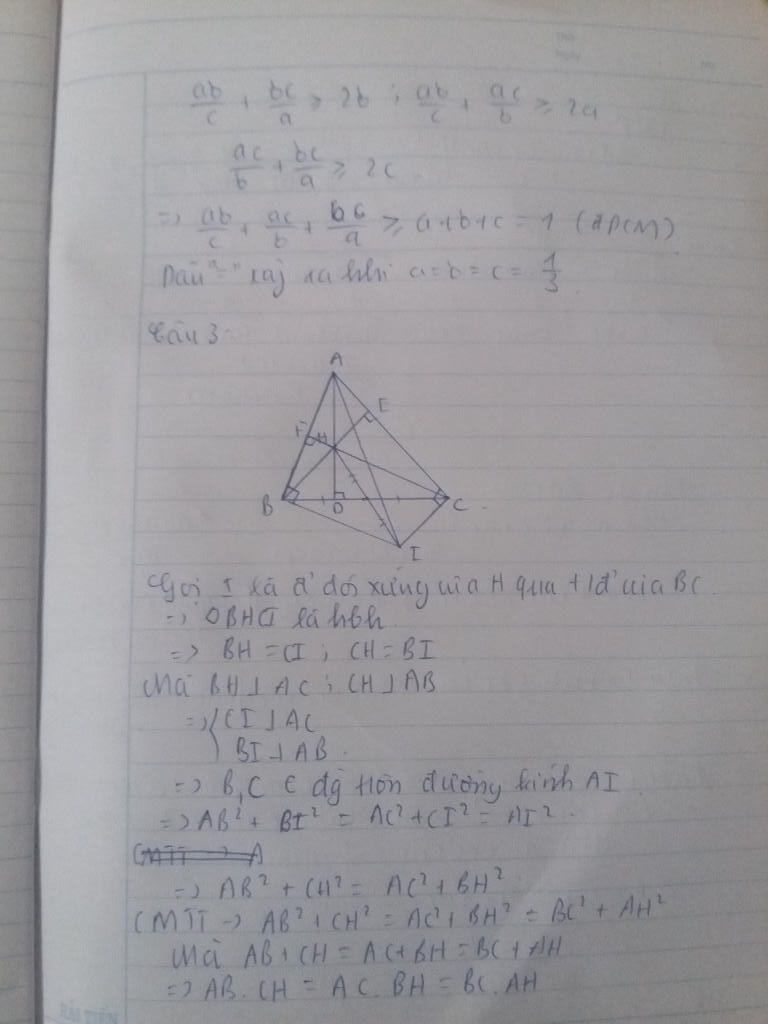 ab/c + bc/a ≥ 2b ; ab/c + ac/b ≥ 2a
ac/b + bc/a ≥ 2c
=> ab/c + ac/b + bc/a ≥ a+b+c = 1 (đPCM)
Dấu "=" xảy ra khi a=b=c= 1/3
Câu 3:
A
E
F H
B D C
I
Gọi I là đ' đối xứng của H qua t/đ' của BC.
=> ◇BHCI là hbh
=> BH = CI ; CH = BI
Mà BH⊥AC ; CH⊥AB
=> { CI⊥AC
BI⊥AB.
=> B,C ∈ đg tròn đường kính AI
=> AB² + BI² = AC² + CI² = AI².
=> AB² + CH² = AC² + BH²
CMTT -> AB² + CH² = AC² + BH² = BC² + AH²
Mà AB+CH = AC+BH = BC+AH
=> AB.CH = AC.BH = BC.AH
HẢI TIẾN